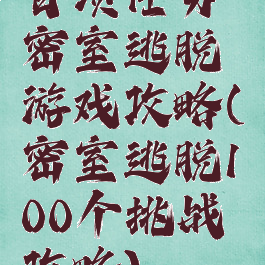 密室逃脱
游戏攻略(
密室逃脱1
00个挑战
攻略)